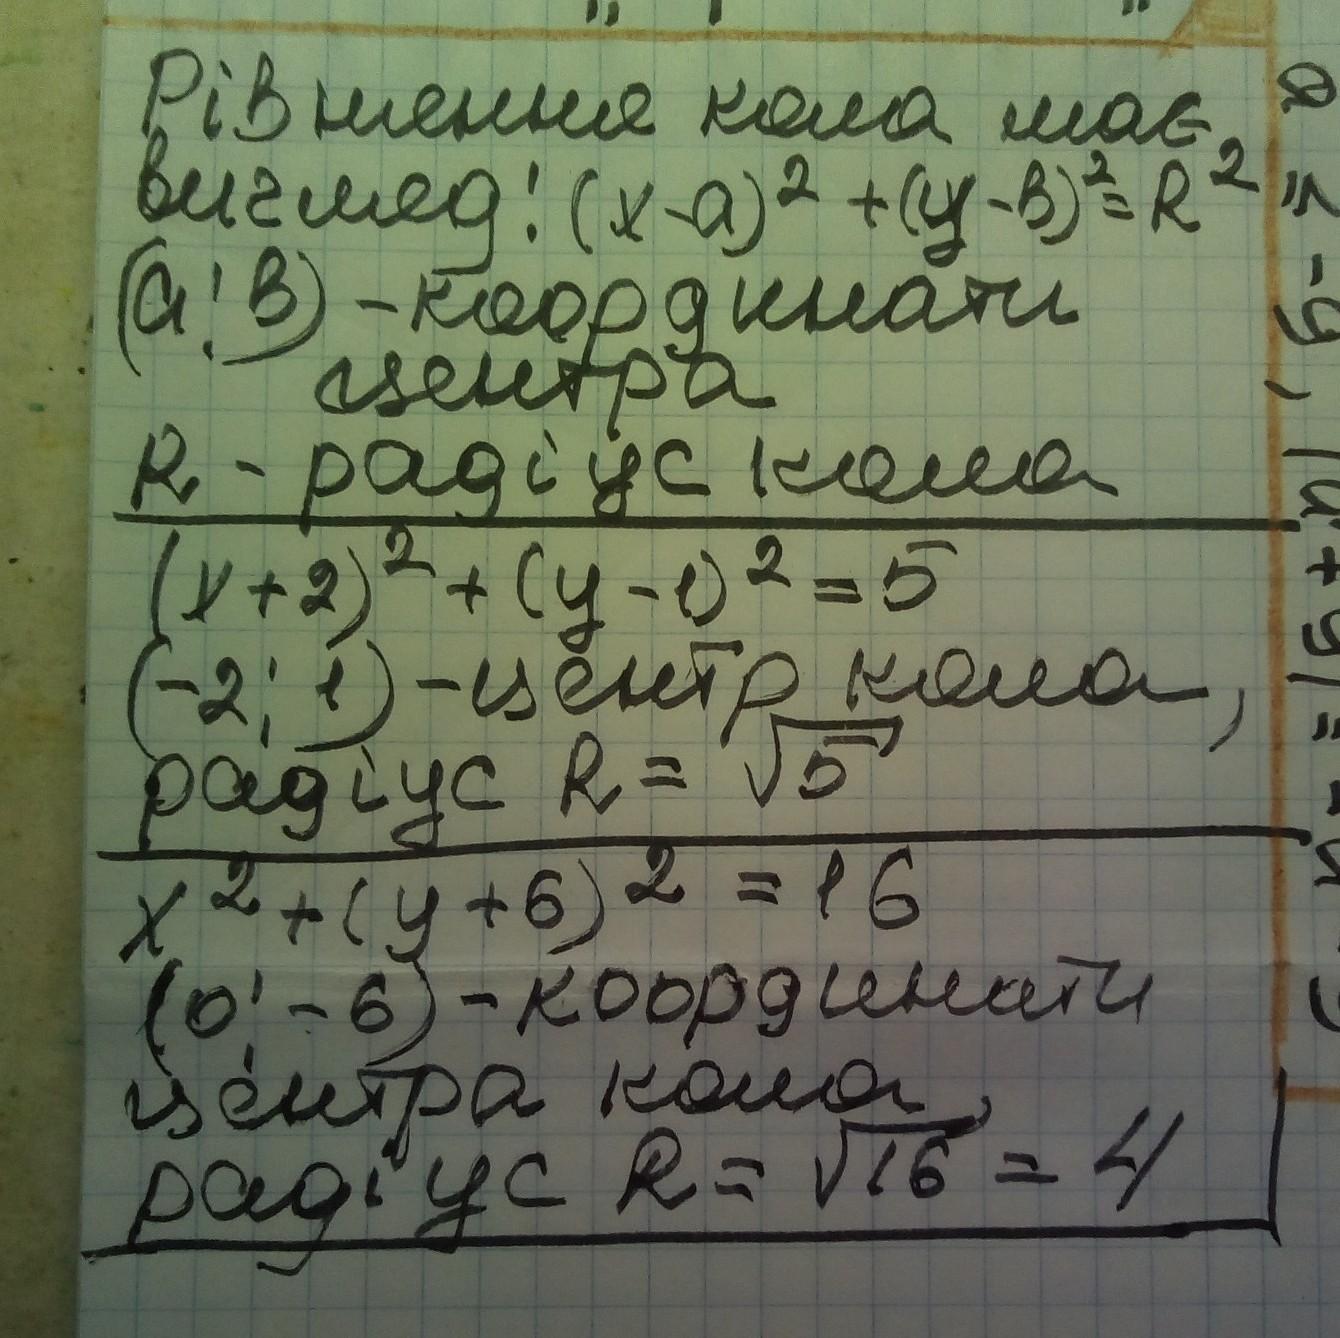 Рівняння кола має
вигляд: (x-a)² + (y-в)² = R²
(a; в) - координати
центра
R - радіус кола
(x+2)² + (y-1)² = 5
(-2; 1) - центр кола,
радіус R = √5
x² + (y+6)² = 16
(0; -6) - координати
центра кола,
радіус R = √16 = 4